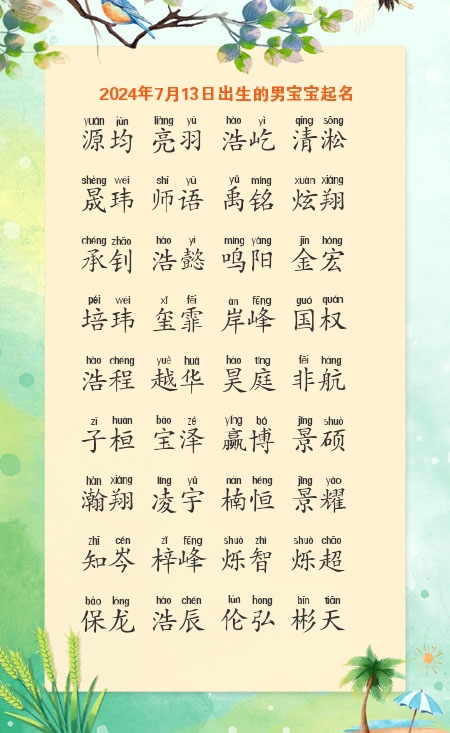 2024年7月13日出生的男宝宝起名
yuán jūn liàng yǔ hào yì qīng sōng
源均 亮羽 浩屹 清淞
shèng wěi shī yǔ yǔ míng xuàn xiáng
晟玮 师语 禹铭 炫翔
chéng zhāo hào yì míng yáng jīn hóng
承钊 浩懿 鸣阳 金宏
péi wěi xǐ fēi àn fēng guó quán
培玮 玺霏 岸峰 国权
hào chéng yuè huá hào tíng fēi háng
浩程 越华 昊庭 非航
zǐ huán bǎo zé yíng bó jǐng shuò
子桓 宝泽 赢博 景硕
hàn xiáng líng yǔ nán héng jǐng yào
瀚翔 凌宇 楠恒 景耀
zhī cén zǐ fēng shuò zhì shuò chāo
知岑 梓峰 烁智 烁超
bǎo lóng hào chén lún hóng bīn tiān
保龙 浩辰 伦弘 彬天